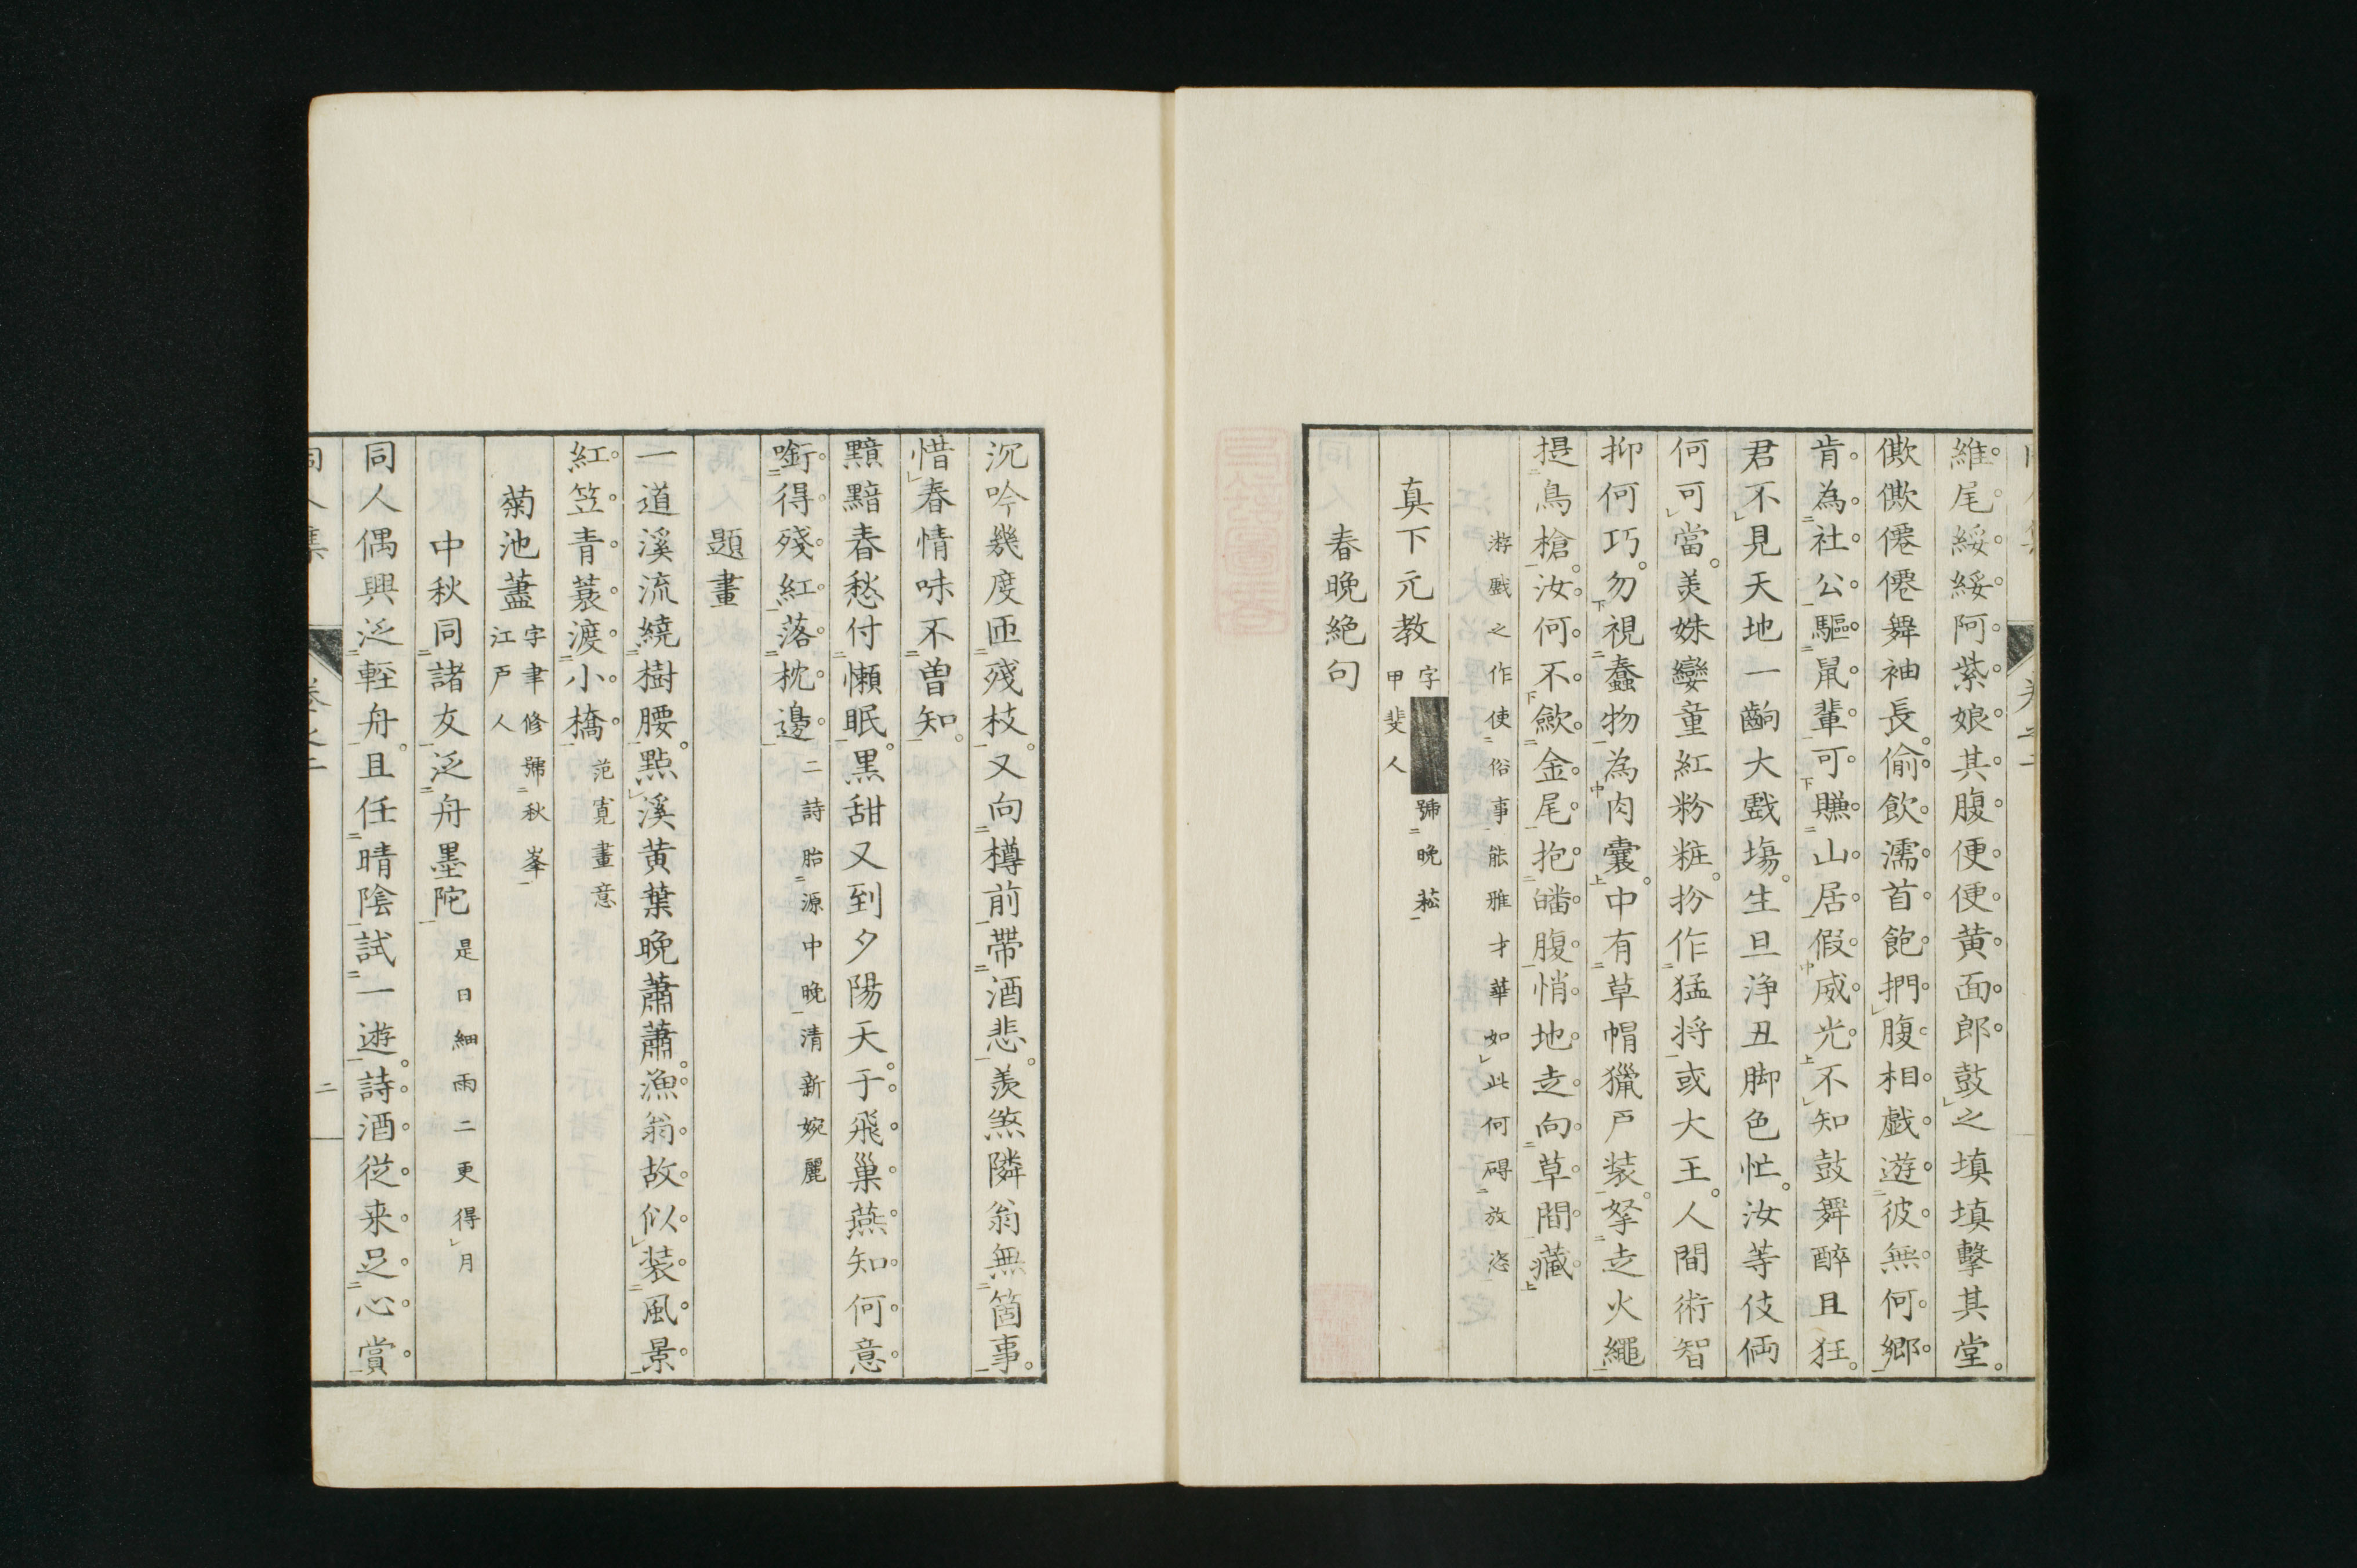 維尾綏綏阿紫娘其腹便便黃面郎鼓之塡塡擊其堂
僛僛僊僊舞袖長偷飲濡首飽捫腹相戲遊彼無何鄉
肯為社公驅鼠輩可賺山居假威光不知鼓舞醉且狂
君不見天地一齣大戲場生旦淨丑脚色忙汝等伎倆
何可當美姝孌童紅粉粧扮作猛将或大王人間術智
抑何巧勿視蠢物為肉囊中有草帽獵戶装拏走火繩
提鳥槍汝何不歛金尾抱皤腹悄地走向草間藏
游戲之作使俗事能雅才華如此何碍放恣
真下元教 字 號晩菘
甲斐人
春晩絶句
沉吟幾度匝殘枝又向樽前帶酒悲羨煞隣翁無箇事
惜春情味不曽知
黯黯春愁付懶眠黒甜又到夕陽天于飛巢燕知何意
銜得殘紅落枕邊 二詩胎源中晚清新婉麗
題畫
一道溪流繞樹腰點溪黃葉晚蕭蕭漁翁故似装風景
紅笠青蓑渡小橋 范寬畫意
菊池藎 字聿修號秋峯
江戶人
中秋同諸友泛舟墨陀 是日細雨二更得月
同人偶興泛輕舟且任晴陰試一遊詩酒從来足心賞
同人集 卷之二 二